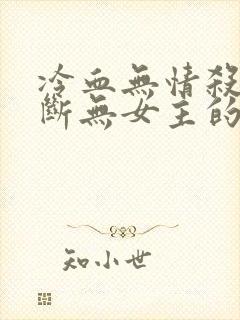 冷血無情殺
斷無女主的
知小世